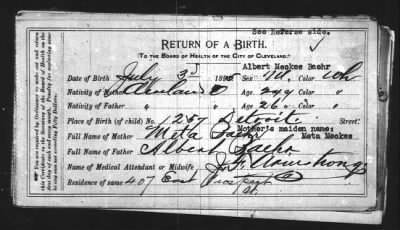 See Reverse side.
RETURN OF A BIRTH.
TO THE BOARD OF HEALTH OF THE CITY OF CLEVELAND.
Albert Meckes Baehr
Date of Birth July 3d 189 Sex M. Color Wh
Nativity of Mother Cleveland O Age 24 y
Nativity of Father " " Age 26 "
Place of Birth (of child) No. 1257 Detroit Street.
Mother's maiden name:
Full Name of Mother Meta Baehr Meta Meckes
Full Name of Father Albert Baehr
Name of Medical Attendant or Midwife J. F. Armstrong
Residence of same 407 East Prospect St.